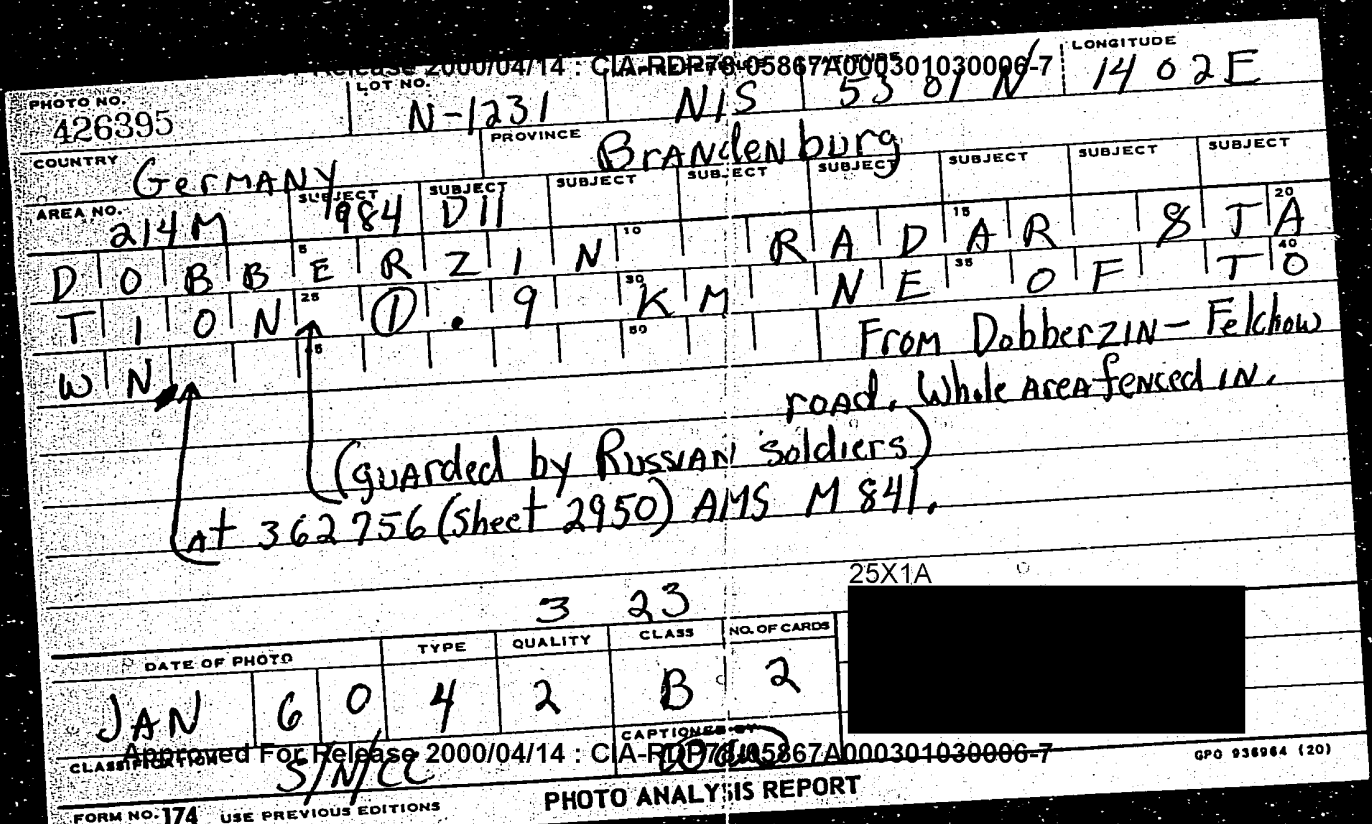 Release 2000/04/14 : CIA-RDP78-05867A000301030006-7
LONGITUDE
PHOTO NO. 426395
LOT NO. N-1231
NIS
53 01 N
14 02 E
COUNTRY Germany
PROVINCE Brandenburg
AREA NO. 214M
SUBJECT 984 SUBJECT D11 SUBJECT SUBJECT SUBJECT SUBJECT SUBJECT SUBJECT
DOBBERZIN RADAR STA
TION ①.9 KM NE OF TO
WN
5 10 15 20
25 30 35 40
45 50
From Dobberzin - Felchow
road. Whole area fenced in.
(guarded by Russian soldiers)
at 362756 (sheet 2950) AMS M 841.
25X1A
3 23
DATE OF PHOTO TYPE QUALITY CLASS NO. OF CARDS
JAN 60 4 2 B 2
CAPTIONED BY
Approved For Release 2000/04/14 : CIA-RDP78-05867A000301030006-7
CLASSIFICATION
S/N/CC
GPO 936964 (20)
FORM NO. 174 USE PREVIOUS EDITIONS
PHOTO ANALYSIS REPORT